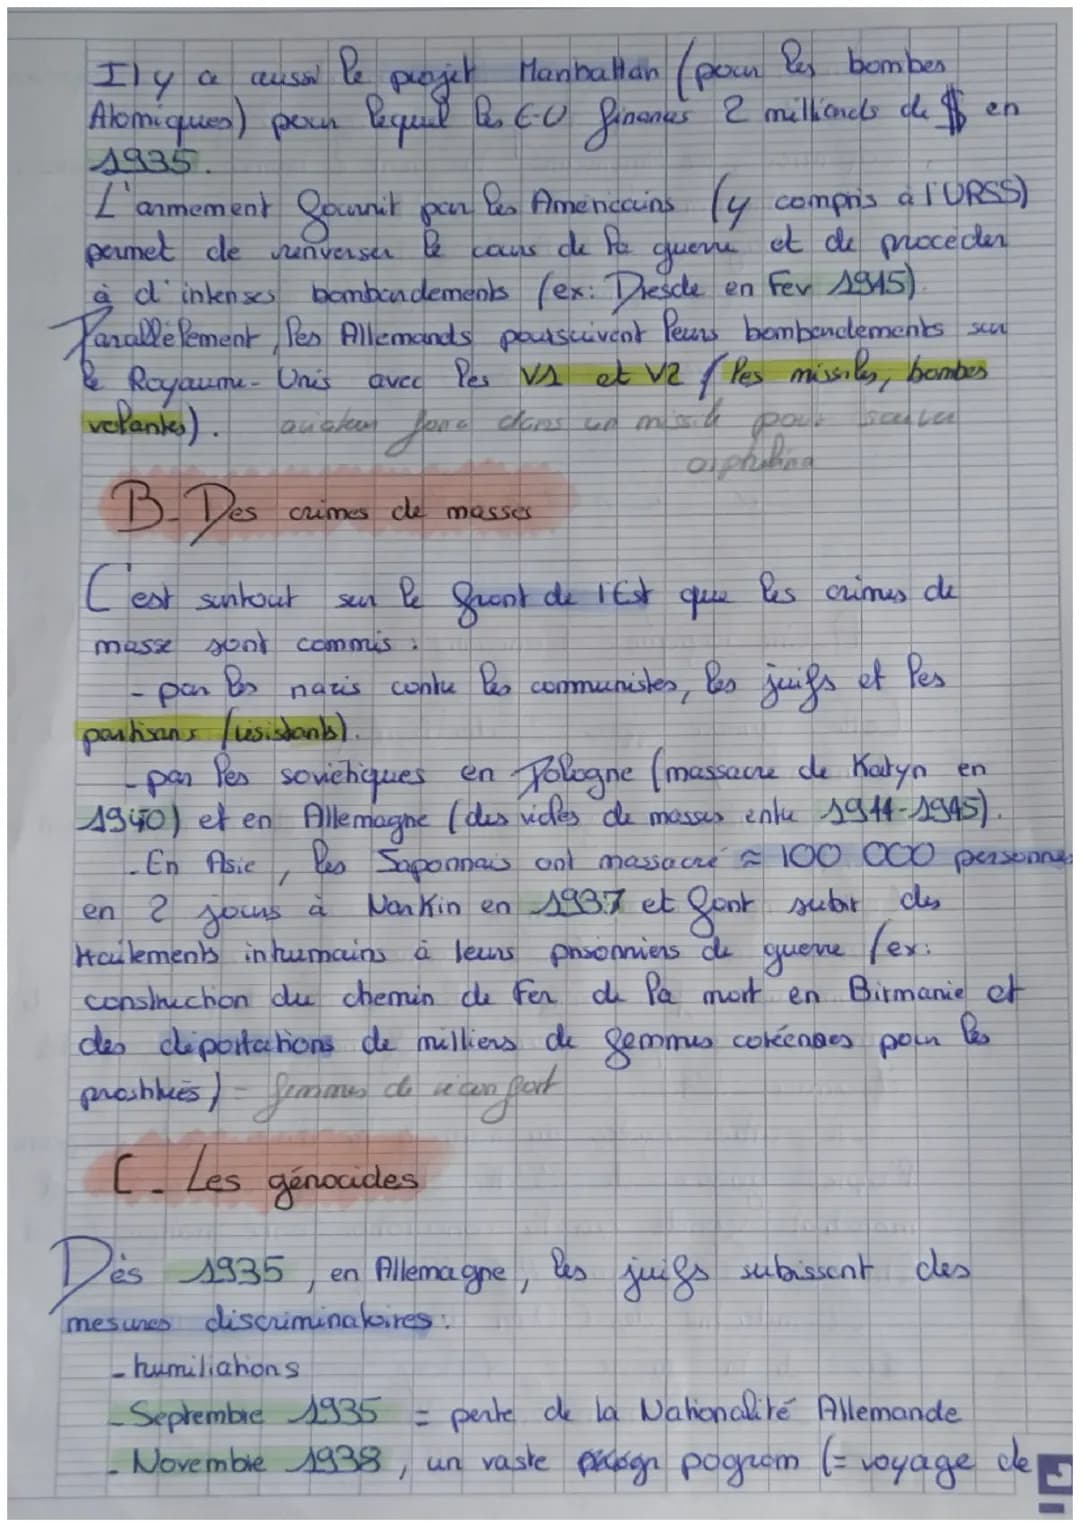 Il y a aussi le projet Manhattan (pour les bombes
Atomiques) pour lequel les E-U finances 2 milliards de $ en
1935.
L'armement fournit par les Américains (y compris à l'URSS)
permet de renverser le cours de la guerre et de proceder
à d'intenses bombardements (ex: Dresde en Fev 1945).
Parallèlement, les Allemands poursuivent leurs bombardements sur
le Royaume-Unis avec les V1 et V2 (les missiles, bombes
volantes). dans un missile pour
B- Des crimes de masses
C'est surtout sur le front de l'Est que les crimes de
masse sont commis :
- par les nazis contre les communistes, les juifs et les
partisans (résistants).
- par les soviétiques en Pologne (massacre de Katyn en
1940) et en Allemagne (des viols de masses entre 1944-1945).
- En Asie, les Japonnais ont massacré ≈ 100 000 personnes
en 2 jours à Nankin en 1937 et font subir des
traitements inhumains à leurs prisonniers de guerre (ex:
construction du chemin de fer de la mort en Birmanie et
des déportations de milliers de femmes coréennes pour les
prostituées) - femmes de réconfort
C- Les génocides
Dès 1935, en Allemagne, les juifs subissent des
mesures discriminatoires :
- humiliations
- Septembre 1935 = perte de la Nationalité Allemande
- Novembre 1938, un vaste pogrom (= voyage de